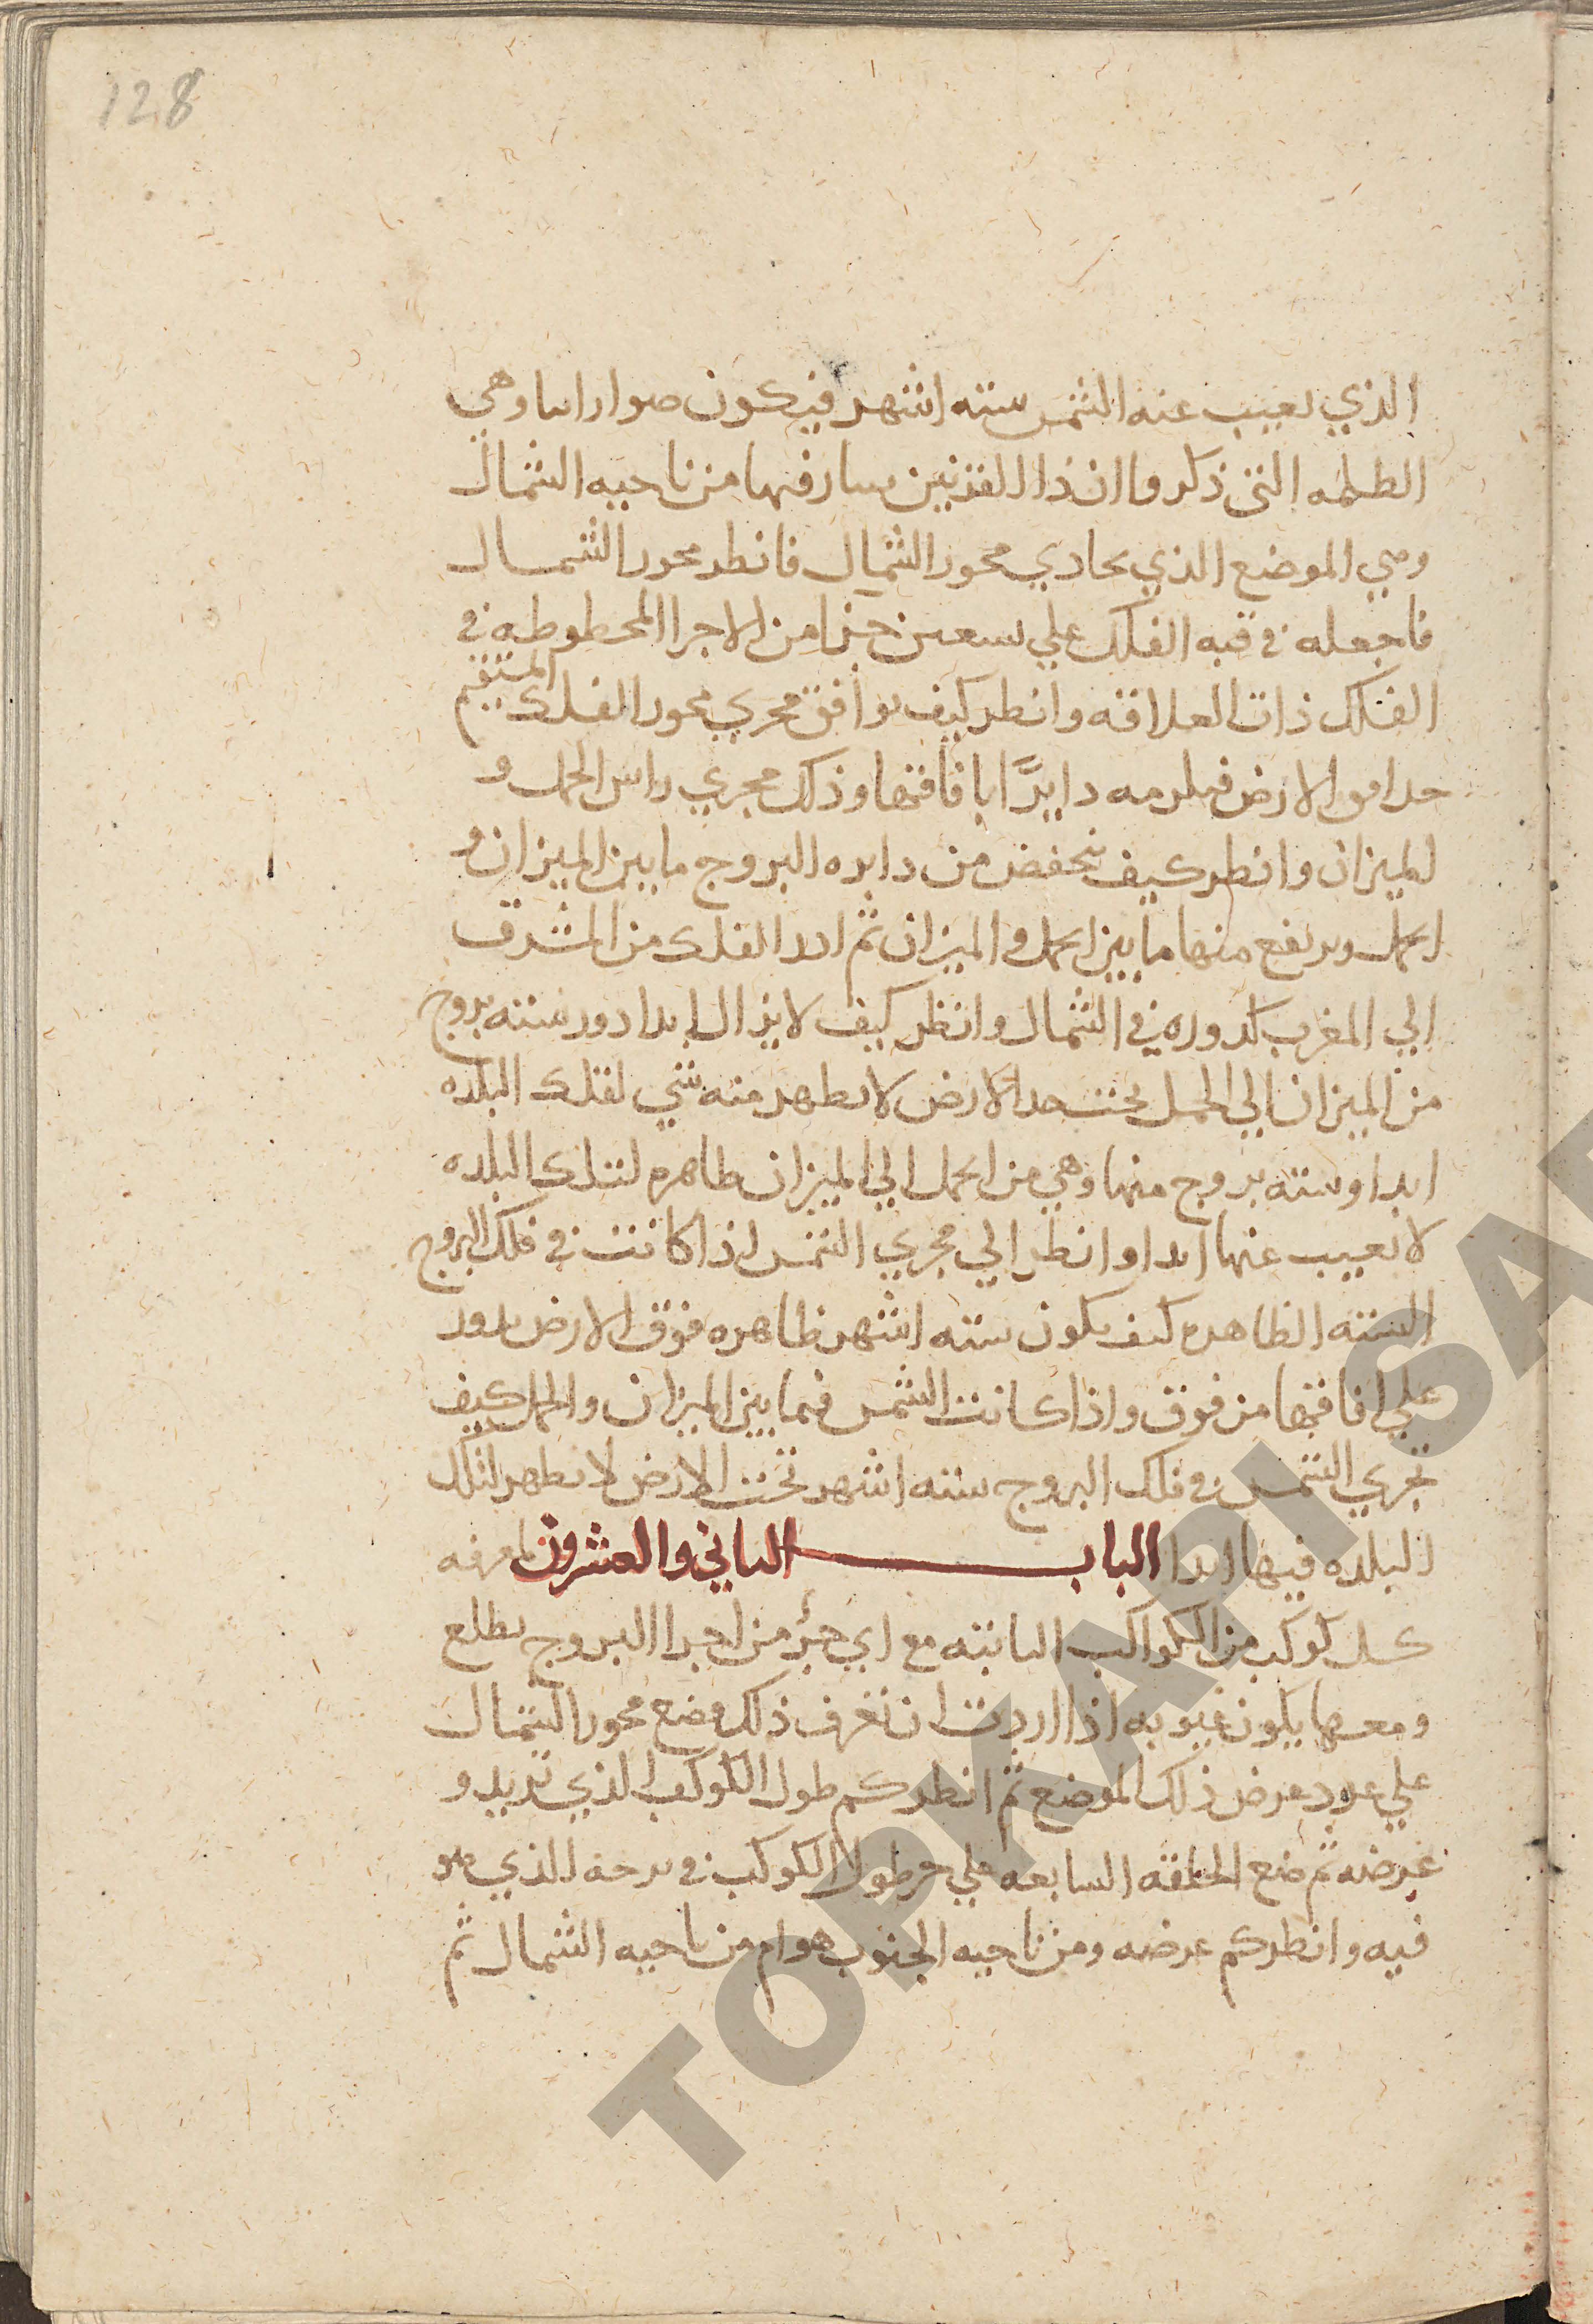 128
الذي تغيب عنه الشمس سته اشهر فيكون وهي
الظلمه التي ذكروا ان ذا القرنين سار فيها من ناحيه الشمال
وهي الموضع الذي يحادي محور الشمال فانطر محور الشمال
فاجعله في قبه الفلك علي تسعين جزا من الاجزا المخطوطه في
الفلك ذات العلاقه وانطر كيف يوافق مجري محور الفلك المستقيم
الارض دايرًا بافاقها وذلك مجري راس الحمل و
الميزان وانطر كيف ينخفض من دايره البروج ما بين الميزان و
الحمل ويرتفع منها ما بين الحمل و الميزان ثم ادر الفلك من المشرق
الي المغرب كدوره في الشمال وانظر كيف لا يزال ابدا دور سته بروج
من الميزان الي الحمل تحت حد الارض لا يطهر منه شي لفلك البلده
ابدا وسته بروج منها وهي من الحمل الي الميزان طاهره لتلك البلده
لا تغيب عنها ابدا وانطر الي مجري الشمس اذا كانت في فلك البروج
السته الظاهره كيف يكون سته اشهر ظاهره فوق الارض يدور
علي افاقها من فوق واذا كانت الشمس فيما بين الميزان والحمل كيف
تجري الشمس في فلك البروج سته اشهر تحت الارض لا يطهر لتلك
البلده فيها ابدا الباب الثاني والعشرون لمعرفه
كل كوكب من الكواكب الثابته مع اي جزء من اجزا البروج يطلع
ومعها يكون غيوبه اذا اردت ان تعرف ذلك فضع محور الشمال
علي عرض ذلك الموضع ثم انطر كم طول الكوكب الذي تريد و
عرضه ثم ضع الحلقه السابعه علي طول الكوكب في برجه الذي هو
فيه وانطر كم عرضه ومن ناحيه الجنوب هو ام من ناحيه الشمال ثم
TOPKAPI SA